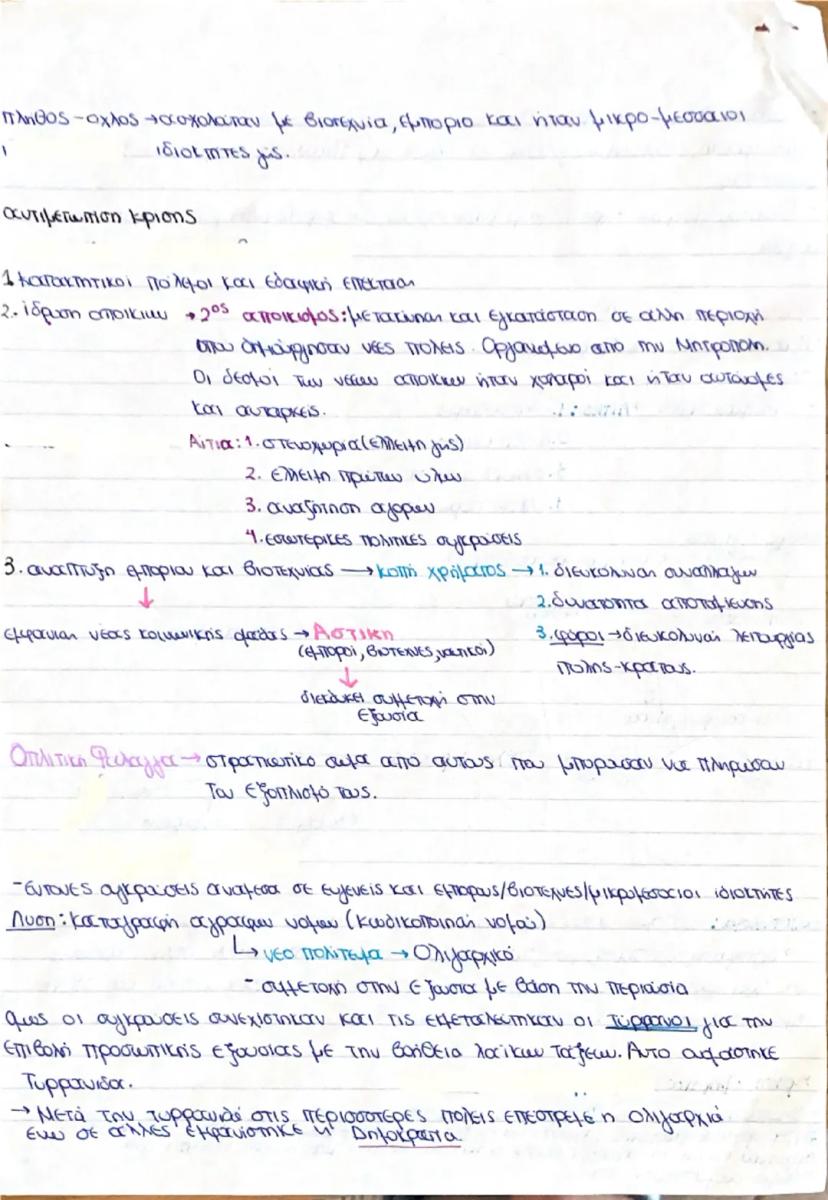 πληθος-οχλος → ασχολόταν με βιοτεχνία, εμποριο και ήταν μικρο-μεσσαιοι
ιδιοκτητες γης.
αντιμετωπιση κρισης
1 κατακτητικοι πόλεμοι και εδαφική επεκταση
2. ίδρυση αποικιων → 2ος αποικισμος: μετακινηση και εγκατάσταση σε αλλη περιοχή
οπου δημιούργησαν νέες πολεις. Οργανωμενο από την Μητροπολη.
Οι δεσμοί των νεων αποικιων ήταν χαλαροί και ήταν αυτόνομες
και αυταρκεις.
Αίτια: 1. στενοχωρια (ελλειψη γης)
2. ελλειψη πρώτων υλων
3. αναζήτηση αγορων
4. εσωτερικες πολιτικες συγκρούσεις
3. αναπτυξη εμποριου και βιοτεχνιας → κοπή χρήματος → 1. διευκολυνση συναλλαγων
2. δυνατοτητα αποταμιευσης
εμφανιση νεας κοινωνικής ομαδας → Αστικη 3. φόροι → διευκολυνση λειτουργίας
(εμποροι, βιοτεχνες, ναυτικοί) πολης-κρατους.
διεκδικει συμμετοχή στην
εξουσία
Οπλιτική Φαλαγγα → στρατιωτικό σωμα απο αυτους που μπορουσαν να πληρωσουν
Τον εξοπλισμό τους.
-Εντονες συγκρουσεις αναμεσα σε ευγενεις και εμπορους/βιοτεχνες/μικρομεσαιοι ιδιοκτητες
Λυση: καταγραφή αγραφων νομων (κωδικοποιηση νομων)
↳ νεο πολιτευμα → Ολιγαρχικό
- συμμετοχή στην εξουσια με βάση την περιουσία
Ομως οι συγκρουσεις συνεχιστηκαν και τις εκμεταλευτηκαν οι τύρρανοι για την
επιβολή προσωπικής εξουσίας με την βοήθεια λαϊκων τάξεων. Αυτο ονομαστηκε
Τυρρανιδα.
→ Μετά την τυρρανιδα στις περισσοτερες πολεις επεστρεψε η ολιγαρχιά
ενω σε αλλες εμφανιστηκε η Δημοκρατια